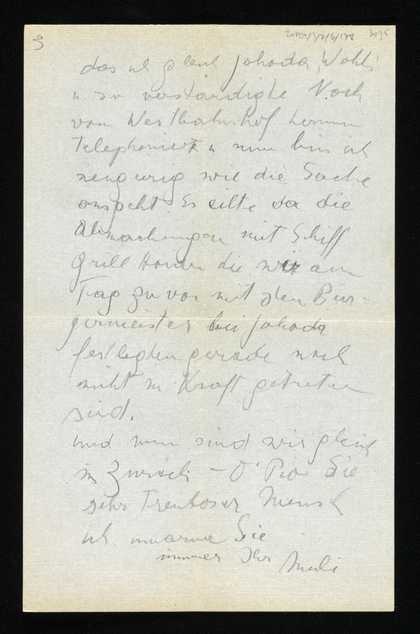 das ich gleich Jahoda, Wohl
u so verständigte Noch
vom Westbahnhof
Telephoniert u nun bin ich
neugierig wie die Sache
ausgeht. Es eilte da die
Abmachungen mit Schiff
Grill die wir am
Tag zuvor mit dem Bür-
germeister bei Jahoda
festlegten gerade noch
nicht in Kraft getreten
sind.
Und nun sind wir gleich
in Zürich – O' Sie
sehr Treuloser Mensch
ich umarme Sie
immer Ihr